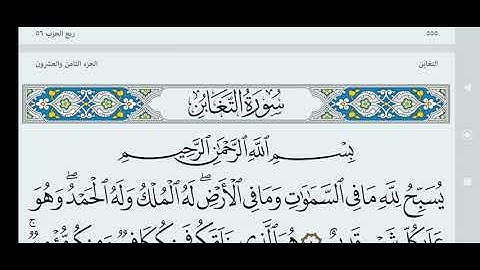 ٥٥٥. ربع الحزب ٥٦
التغابن الجزء الثامن والعشرون
سُورَةُ التَّغَابُنِ
بِسْمِ ٱللَّهِ ٱلرَّحْمَٰنِ ٱلرَّحِيمِ
يُسَبِّحُ لِلَّهِ مَا فِى ٱلسَّمَٰوَٰتِ وَمَا فِى ٱلْأَرْضِ ۖ لَهُ ٱلْمُلْكُ وَلَهُ ٱلْحَمْدُ ۖ وَهُوَ